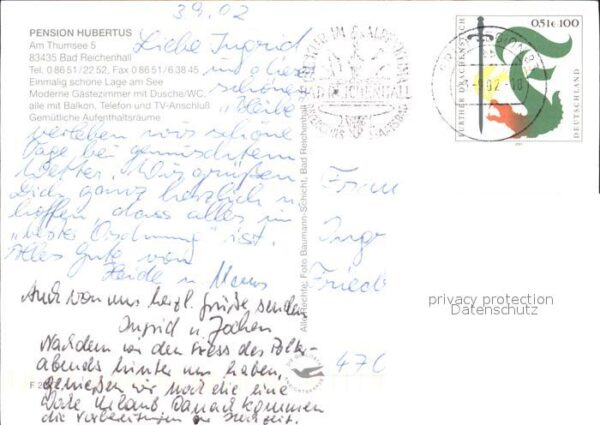 3.9.02
PENSION HUBERTUS
Am Thumsee 5
83435 Bad Reichenhall
Tel. 0 86 51/22 52, Fax 0 86 51/6 38 45
Einmalig schöne Lage am See
Moderne Gästezimmer mit Dusche/WC,
alle mit Balkon, Telefon und TV-Anschluß
Gemütliche Aufenthaltsräume
Liebe Ingrid
in
schönen
Bleibe
verleben wir schöne
Tage bei gemischtem
Wetter. Wir grüßen
Dich ganz herzlich u.
hoffen, dass alles in
"bester Ordnung" ist.
Alles Gute von
Heide u.
Auch von uns herzl. Grüße senden
Ingrid u. Jochen
Nachdem wir den Stress des Polter-
abends hinter uns haben,
genießen wir noch die eine
Woche Urlaub. Danach kommen
die Vorbereitungen zu Hochzeit.
Alle Rechte: Foto Baumann-Schicht, Bad Reichenhall
BAD REICHENHALL
FURTHER DRACHENSTICH
0,51€+100
DEUTSCHLAND
Frau
Inge
Fried
47C
privacy protection
Datenschutz